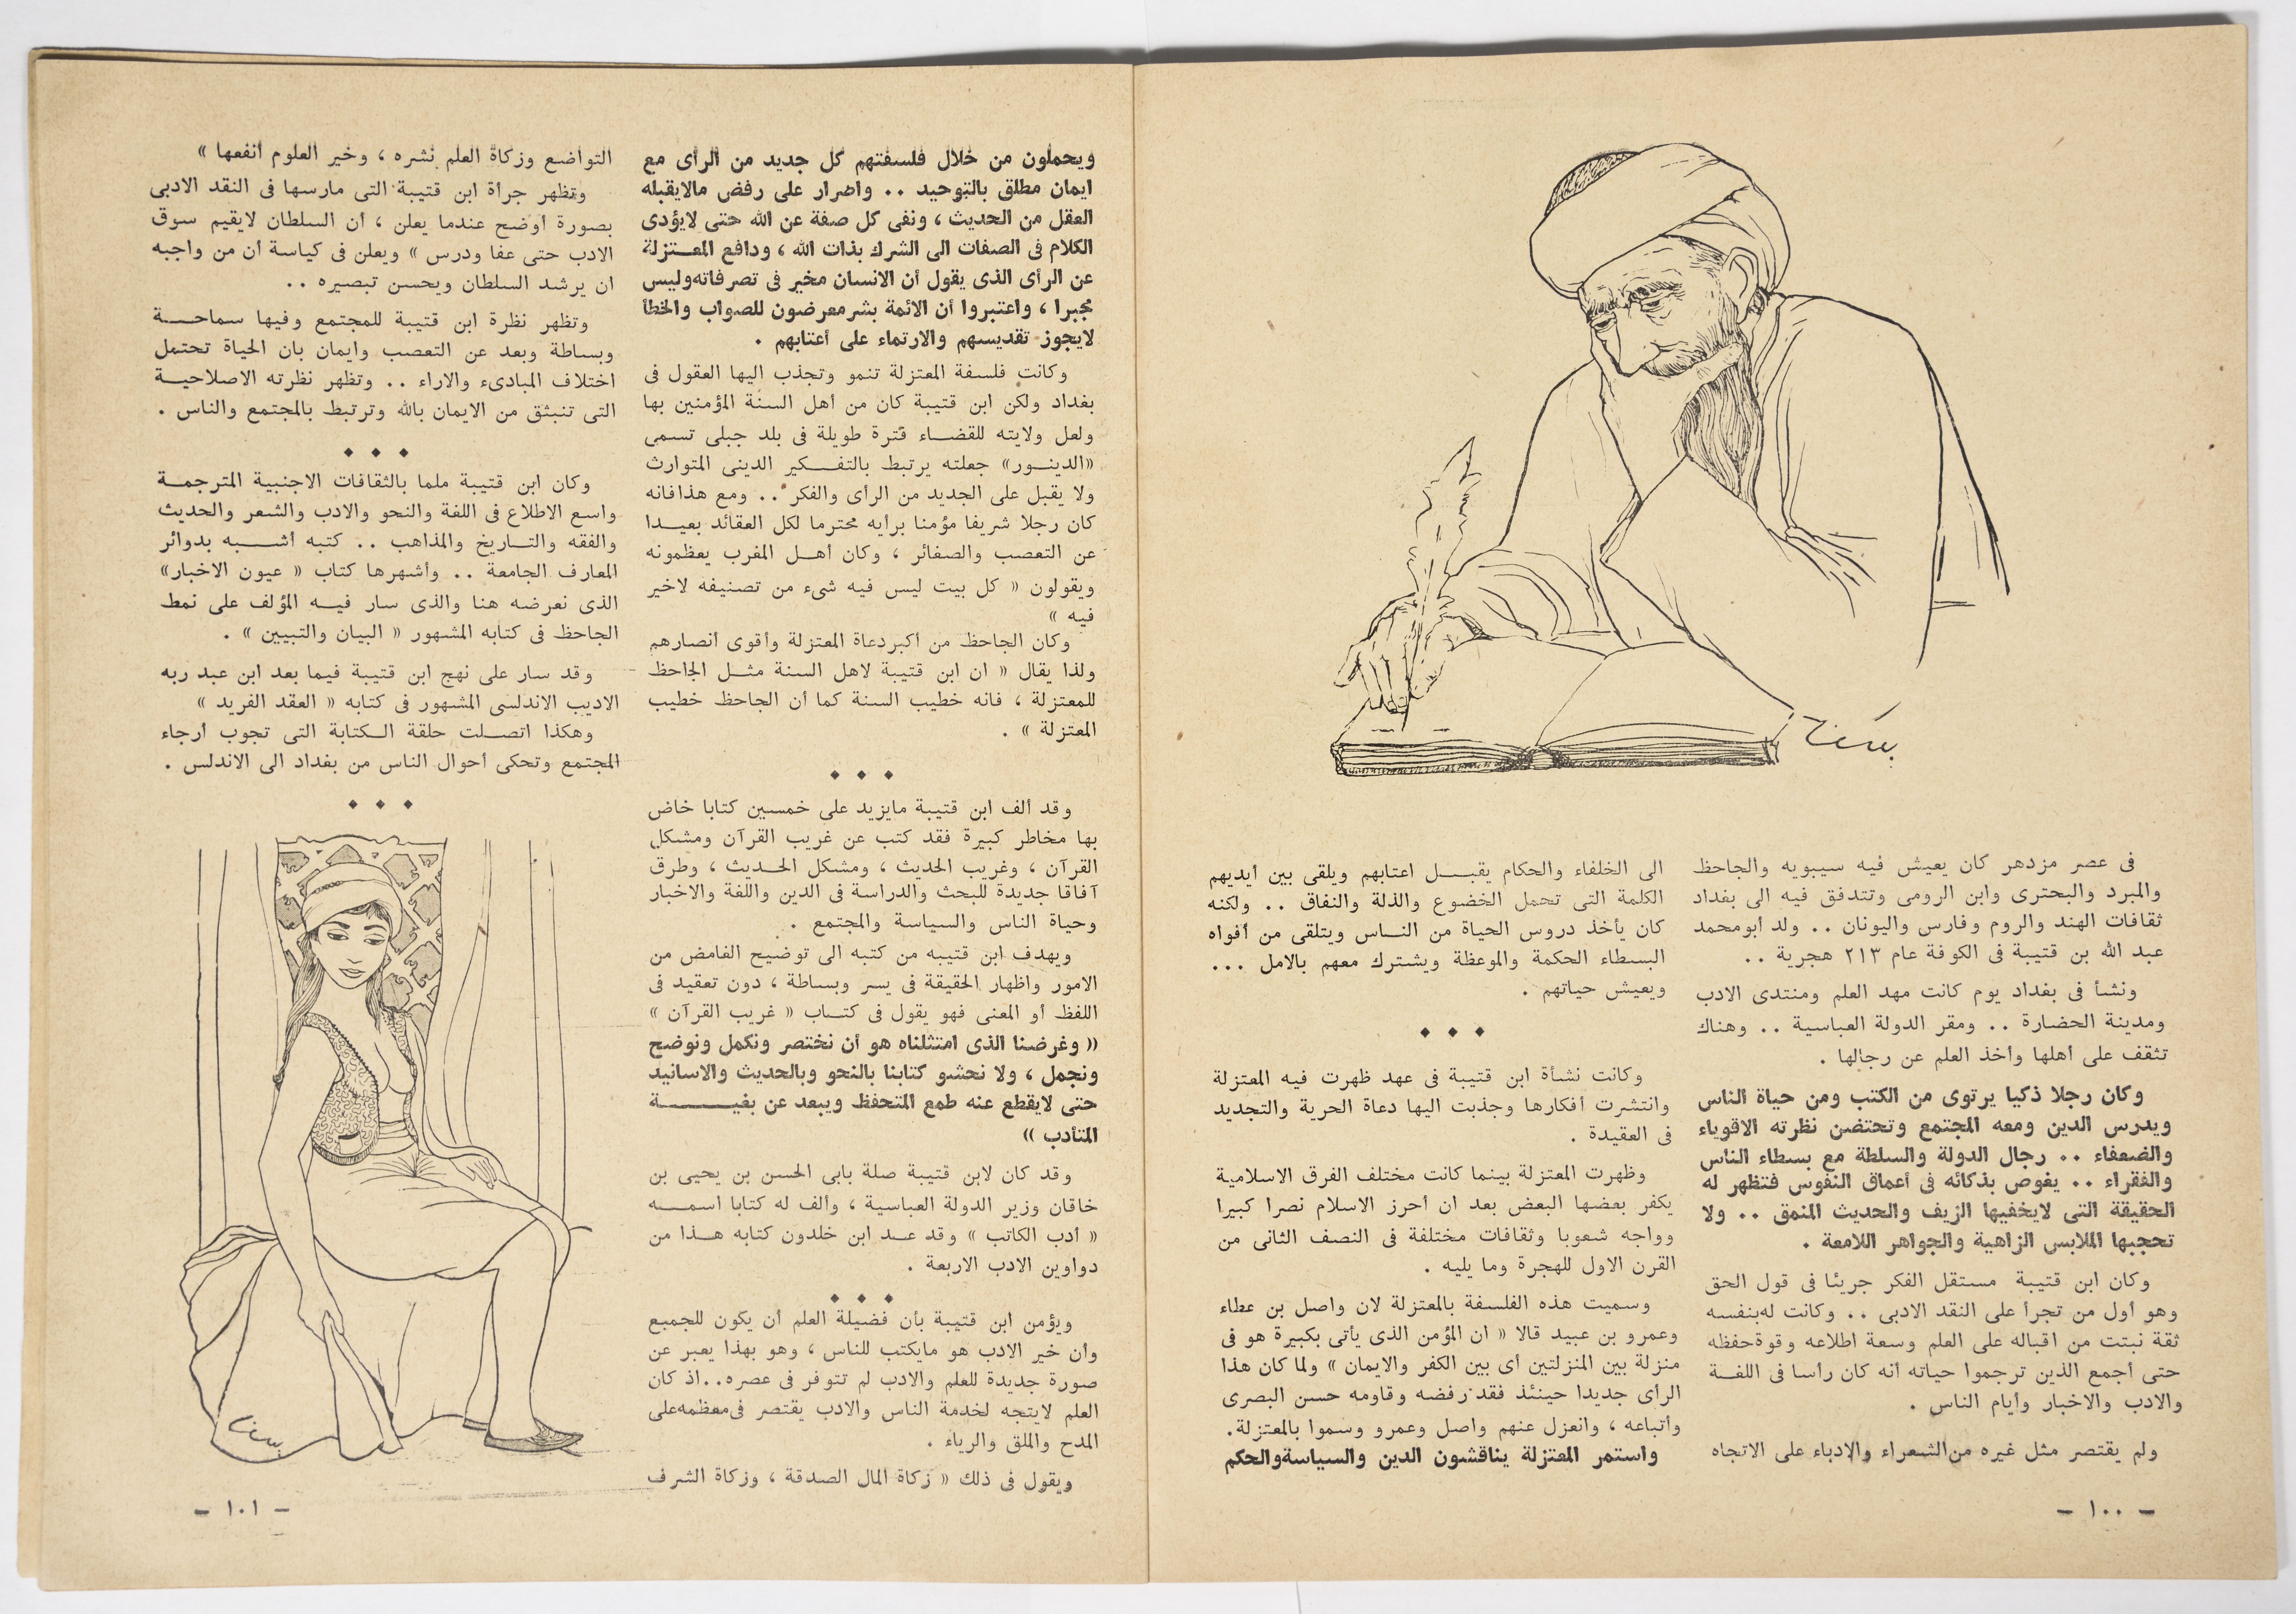 فى عصر مزدهر كان يعيش فيه سيبويه والجاحظ
والمبرد والبحترى وابن الرومى وتتدفق فيه الى بغداد
ثقافات الهند والروم وفارس واليونان .. ولد أبومحمد
عبد الله بن قتيبة فى الكوفة عام ٢١٣ هجرية ..
ونشأ فى بغداد يوم كانت مهد العلم ومنتدى الادب
ومدينة الحضارة .. ومقر الدولة العباسية .. وهناك
تثقف على أهلها وأخذ العلم عن رجالها .
وكان رجلا ذكيا يرتوى من الكتب ومن حياة الناس
ويدرس الدين ومعه المجتمع وتحتضن نظرته الاقوياء
والضعفاء .. رجال الدولة والسلطة مع بسطاء الناس
والفقراء .. يغوص بذكائه فى أعماق النفوس فتظهر له
الحقيقة التى لايخفيها الزيف والحديث المنمق .. ولا
تحجبها الملابس الزاهية والجواهر اللامعة .
وكان ابن قتيبة مستقل الفكر جريئا فى قول الحق
وهو أول من تجرأ على النقد الادبى .. وكانت له بنفسه
ثقة نبتت من اقباله على العلم وسعة اطلاعه وقوة حفظه
حتى أجمع الذين ترجموا حياته أنه كان رأسا فى اللغة
والادب والاخبار وأيام الناس .
ولم يقتصر مثل غيره من الشعراء والادباء على الاتجاه
الى الخلفاء والحكام يقبل اعتابهم ويلقى بين أيديهم
الكلمة التى تحمل الخضوع والذلة والنفاق .. ولكنه
كان يأخذ دروس الحياة من الناس ويتلقى من أفواه
البسطاء الحكمة والموعظة ويشترك معهم بالامل ...
ويعيش حياتهم .
وكانت نشأة ابن قتيبة فى عهد ظهرت فيه المعتزلة
وانتشرت أفكارها وجذبت اليها دعاة الحرية والتجديد
فى العقيدة .
وظهرت المعتزلة بينما كانت مختلف الفرق الاسلامية
يكفر بعضها البعض بعد ان أحرز الاسلام نصرا كبيرا
وواجه شعوبا وثقافات مختلفة فى النصف الثانى من
القرن الاول للهجرة وما يليه .
وسميت هذه الفلسفة بالمعتزلة لان واصل بن عطاء
وعمرو بن عبيد قالا « ان المؤمن الذى يأتى بكبيرة هو فى
منزلة بين المنزلتين أى بين الكفر والايمان » ولما كان هذا
الرأى جديدا حينئذ فقد رفضه وقاومه حسن البصرى
وأتباعه ، وانعزل عنهم واصل وعمرو وسموا بالمعتزلة .
واستمر المعتزلة يناقشون الدين والسياسة والحكم
- ١٠٠ -
ويحملون من خلال فلسفتهم كل جديد من الرأى مع
ايمان مطلق بالتوحيد .. واصرار على رفض مالايقبله
العقل من الحديث ، ونفى كل صفة عن الله حتى لايؤدى
الكلام فى الصفات الى الشرك بذات الله ، ودافع المعتزلة
عن الرأى الذى يقول أن الانسان مخير فى تصرفاته وليس
مجبرا ، واعتبروا أن الائمة بشر معرضون للصواب والخطأ
لايجوز تقديسهم والارتماء على أعتابهم .
وكانت فلسفة المعتزلة تنمو وتجذب اليها العقول فى
بغداد ولكن ابن قتيبة كان من أهل السنة المؤمنين بها
ولعل ولايته للقضاء فترة طويلة فى بلد جبلى تسمى
«الدينور» جعلته يرتبط بالتفكير الدينى المتوارث
ولا يقبل على الجديد من الرأى والفكر .. ومع هذا فانه
كان رجلا شريفا مؤمنا برأيه محترما لكل العقائد بعيدا
عن التعصب والصغائر ، وكان أهل المغرب يعظمونه
ويقولون « كل بيت ليس فيه شىء من تصنيفه لاخير
فيه »
وكان الجاحظ من أكبر دعاة المعتزلة وأقوى أنصارهم
ولذا يقال « ان ابن قتيبة لاهل السنة مثل الجاحظ
للمعتزلة ، فانه خطيب السنة كما أن الجاحظ خطيب
المعتزلة » .
وقد ألف ابن قتيبة مايزيد على خمسين كتابا خاض
بها مخاطر كبيرة فقد كتب عن غريب القرآن ومشكل
القرآن ، وغريب الحديث ، ومشكل الحديث ، وطرق
آفاقا جديدة للبحث والدراسة فى الدين واللغة والاخبار
وحياة الناس والسياسة والمجتمع .
ويهدف ابن قتيبه من كتبه الى توضيح الغامض من
الامور واظهار الحقيقة فى يسر وبساطة ، دون تعقيد فى
اللفظ أو المعنى فهو يقول فى كتاب « غريب القرآن »
(( وغرضنا الذى امتثلناه هو أن نختصر ونكمل ونوضح
ونجمل ، ولا نحشو كتابنا بالنحو وبالحديث والاسانيد
حتى لايقطع عنه طمع المتحفظ ويبعد عن بغية
المتأدب ))
وقد كان لابن قتيبة صلة بابى الحسن بن يحيى بن
خاقان وزير الدولة العباسية ، وألف له كتابا اسمه
« أدب الكاتب » وقد عد ابن خلدون كتابه هذا من
دواوين الادب الاربعة .
ويؤمن ابن قتيبة بأن فضيلة العلم أن يكون للجميع
وأن خير الادب هو مايكتب للناس ، وهو بهذا يعبر عن
صورة جديدة للعلم والادب لم تتوفر فى عصره..اذ كان
العلم لايتجه لخدمة الناس والادب يقتصر فى معظمه على
المدح والملق والرياء .
ويقول فى ذلك « زكاة المال الصدقة ، وزكاة الشرف
التواضع وزكاة العلم نشره ، وخير العلوم أنفعها »
وتظهر جرأة ابن قتيبة التى مارسها فى النقد الادبى
بصورة أوضح عندما يعلن ، أن السلطان لايقيم سوق
الادب حتى عفا ودرس » ويعلن فى كياسة أن من واجبه
ان يرشد السلطان ويحسن تبصيره ..
وتظهر نظرة ابن قتيبة للمجتمع وفيها سماحة
وبساطة وبعد عن التعصب وايمان بان الحياة تحتمل
اختلاف المبادىء والاراء .. وتظهر نظرته الاصلاحية
التى تنبثق من الايمان بالله وترتبط بالمجتمع والناس .
وكان ابن قتيبة ملما بالثقافات الاجنبية المترجمة
واسع الاطلاع فى اللغة والنحو والادب والشعر والحديث
والفقه والتاريخ والمذاهب .. كتبه أشبه بدوائر
المعارف الجامعة .. وأشهرها كتاب « عيون الاخبار»
الذى نعرضه هنا والذى سار فيه المؤلف على نمط
الجاحظ فى كتابه المشهور « البيان والتبيين » .
وقد سار على نهج ابن قتيبة فيما بعد ابن عبد ربه
الاديب الاندلسى المشهور فى كتابه « العقد الفريد »
وهكذا اتصلت حلقة الكتابة التى تجوب أرجاء
المجتمع وتحكى أحوال الناس من بغداد الى الاندلس .
- ١٠١ -